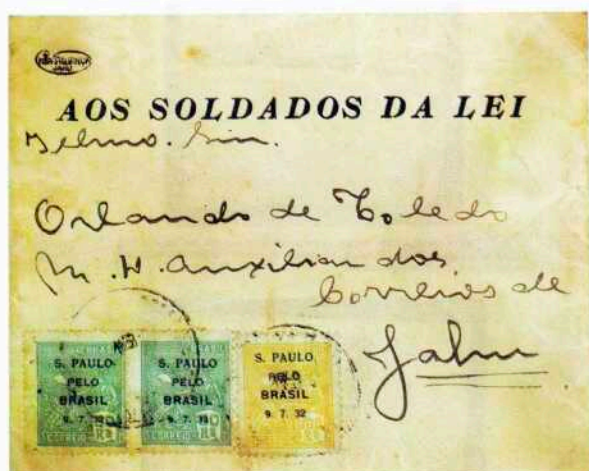 AOS SOLDADOS DA LEI
Orlando de Toledo
M. H. auxiliar dos
Correios de
Jahu
S. PAULO
PELO
BRASIL
9. 7.
CORREIO
S. PAULO
PELO
BRASIL
9. 7.
CORREIO
S. PAULO
PELO
BRASIL
9 7. 32